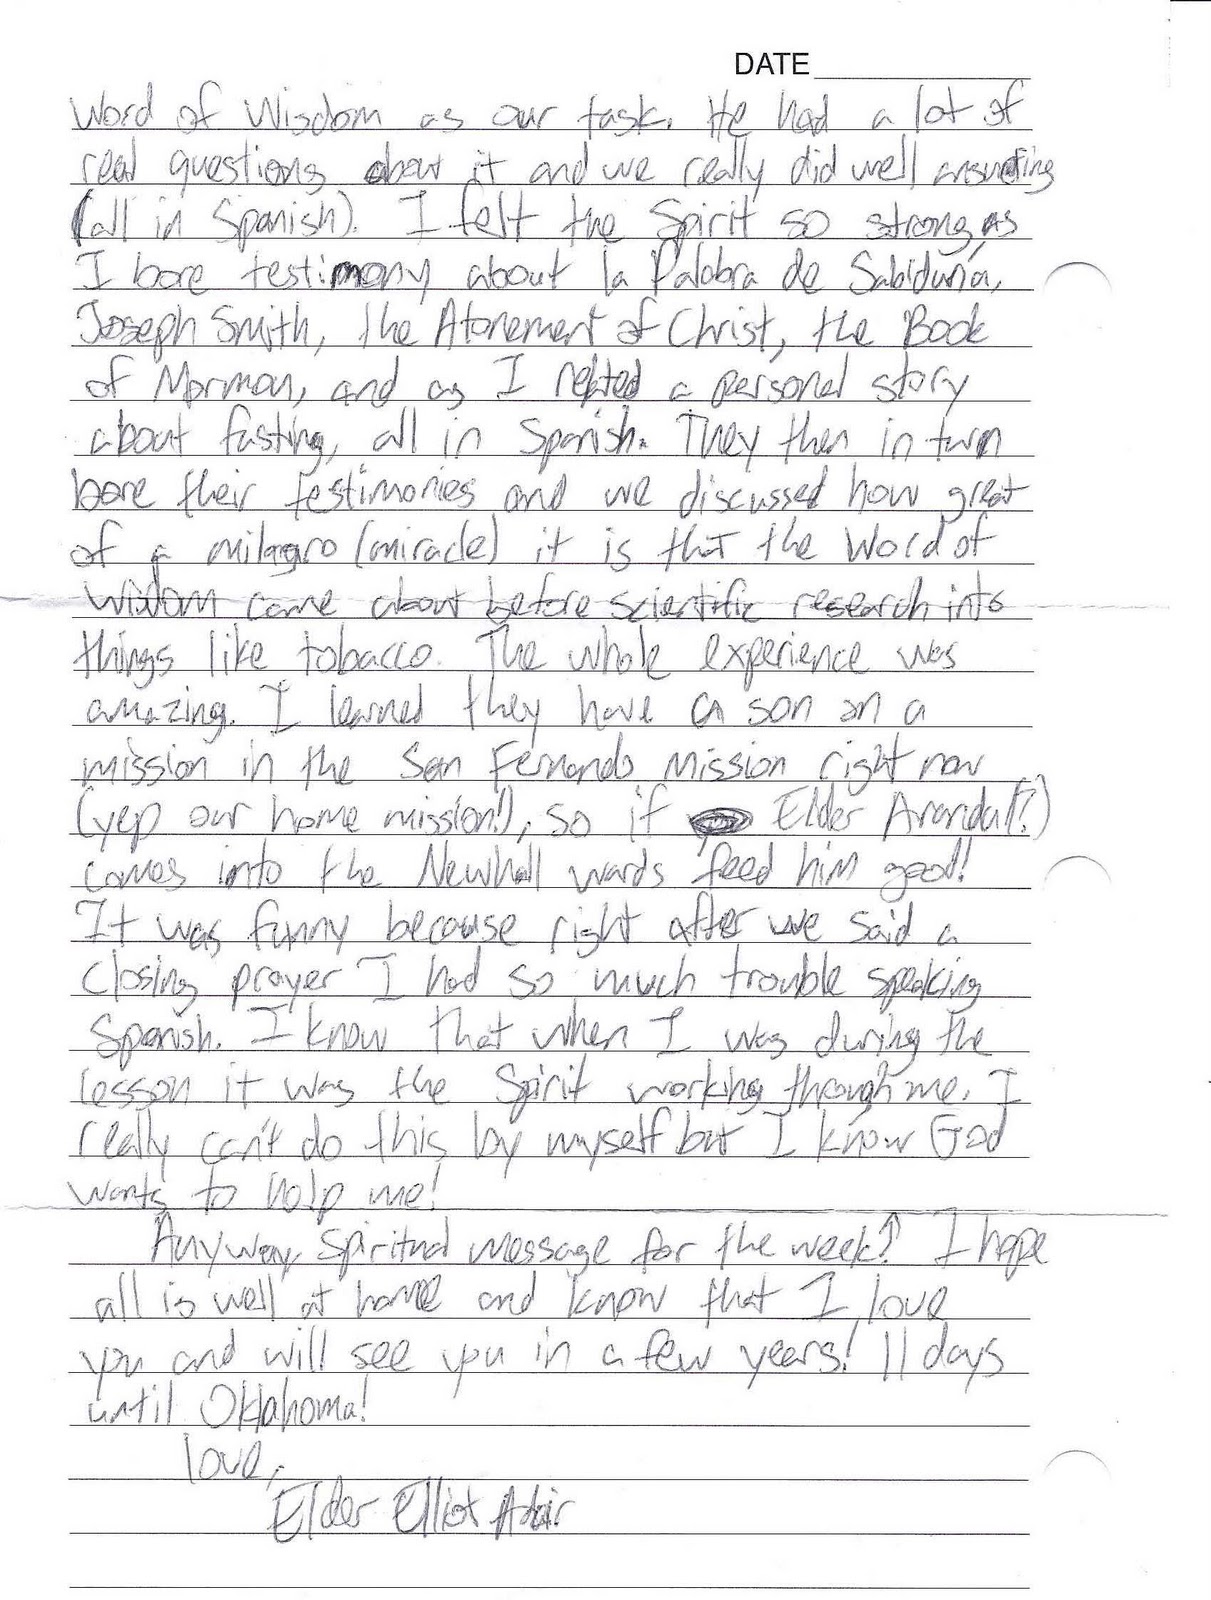 DATE
Word of Wisdom as our task. He had a lot of
real questions about it and we really did well answering
(all in Spanish). I felt the Spirit so strong as
I bore testimony about la Palabra de Sabiduría,
Joseph Smith, the Atonement of Christ, the Book
of Mormon, and as I related a personal story
about fasting, all in Spanish. They then in turn
bore their testimonies and we discussed how great
of a milagro (miracle) it is that the Word of
Wisdom came about before scientific research into
things like tobacco. The whole experience was
amazing. I learned they have a son on a
mission in the San Fernando Mission right now
(yep our home mission!), so if Elder Aranda(?)
comes into the Newhall wards feed him good!
It was funny because right after we said a
closing prayer I had so much trouble speaking
Spanish. I know that when I was during the
lesson it was the Spirit working through me. I
really can't do this by myself but I know God
wants to help me!
Anyway, Spiritual message for the week? I hope
all is well at home and know that I love
you and will see you in a few years! 11 days
until Oklahoma!
love,
Elder Elliot Adair